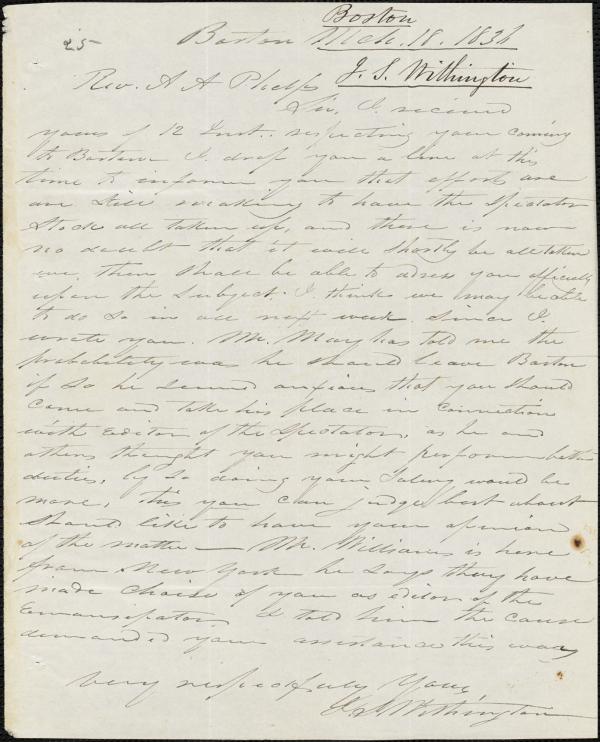 Boston
25 Boston Mch. 18. 1836
J. S. Withington
Rev. A A Phelps
Sir, I received
yours of 12 Inst.. respecting your coming
to Boston I drop you a line at this
time to inform you that efforts are
are still making to have the Spectator
Stock all taken up, and there is now
no doubt that it will shortly be all taken
we then shall be able to adress you officially
upon the subject. I think we may be able
to do so in all next week. Since I
wrote you. Mr. May has told me the
probability was he should leave Boston
if so he seemed anxious that you should
come and take his place in connection
with Editor of the Spectator, as he and
others thought you might perform both
duties, by so doing your Salary would be
more, this you can judge best about
should like to have your opinion
of the matter — Mr. Williams is here
from New York he says they have
made choise of you as editor of the
Emansipator. I told him the cause
demanded your assistance this way
very respectfully Yours
J. S. Withington